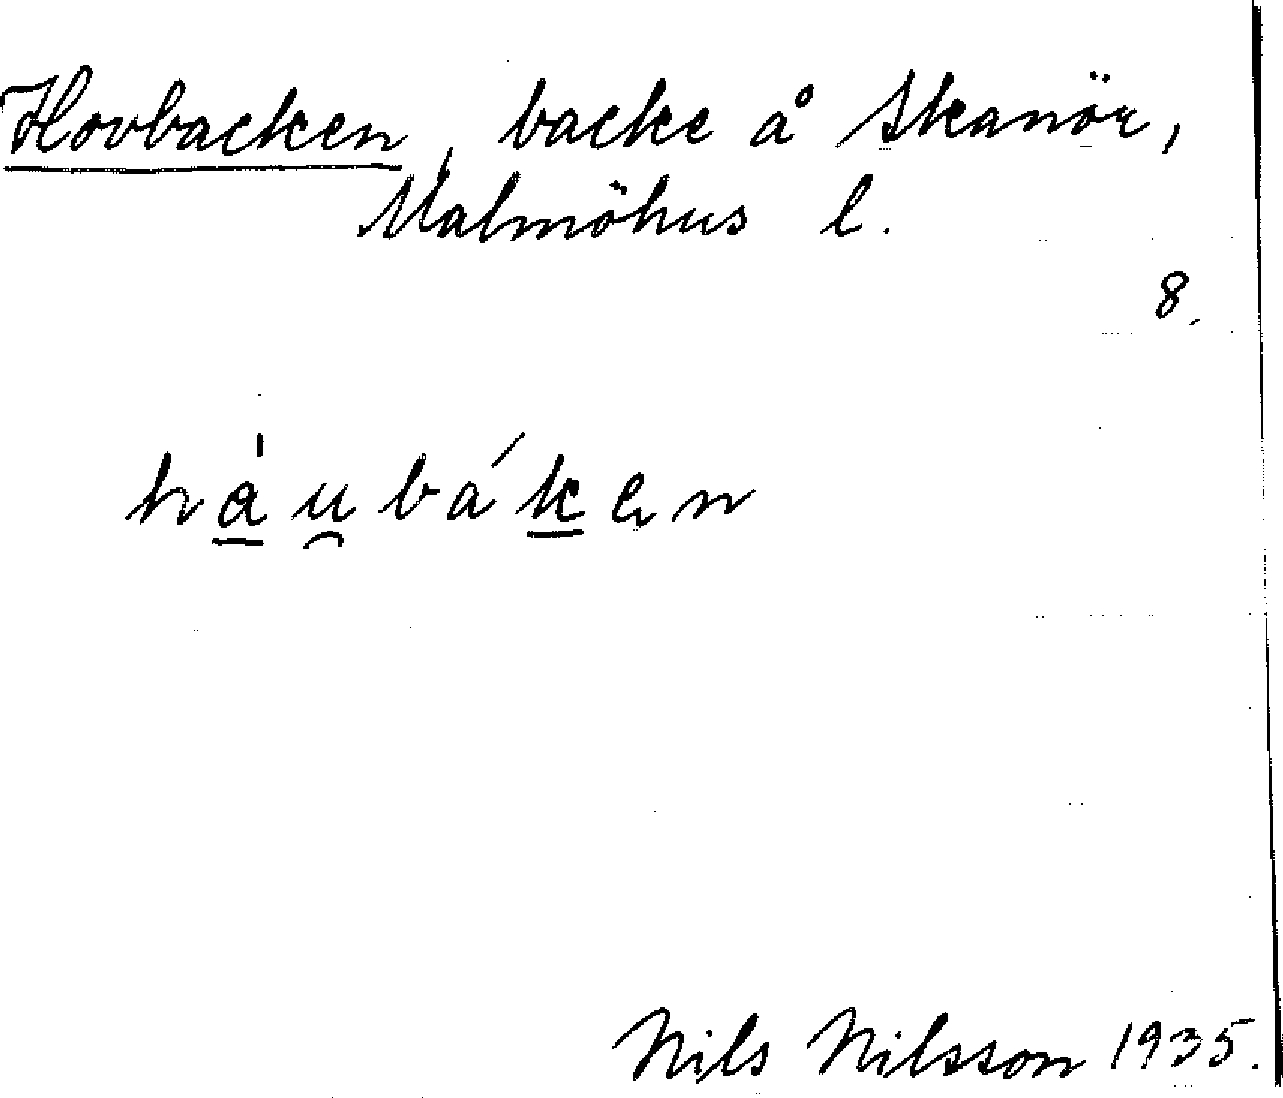 Hovbacken, backe å Skanör,
Malmöhus l.
8.
háu̯báken
Nils Nilsson 1935.